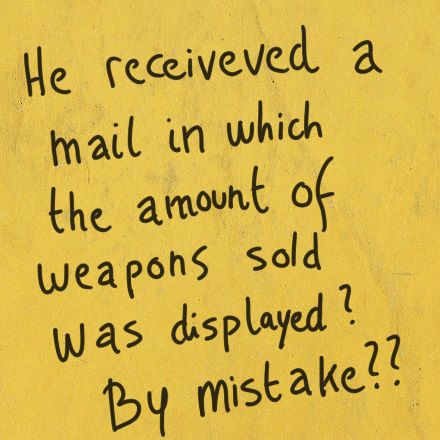 He receiveved a
mail in which
the amount of
weapons sold
was displayed?
By mistake??